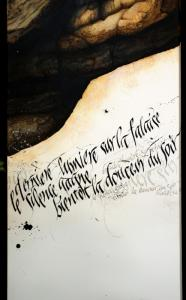 la dernière lumière sur la falaise
le silence gagne
bientôt la douceur du soir